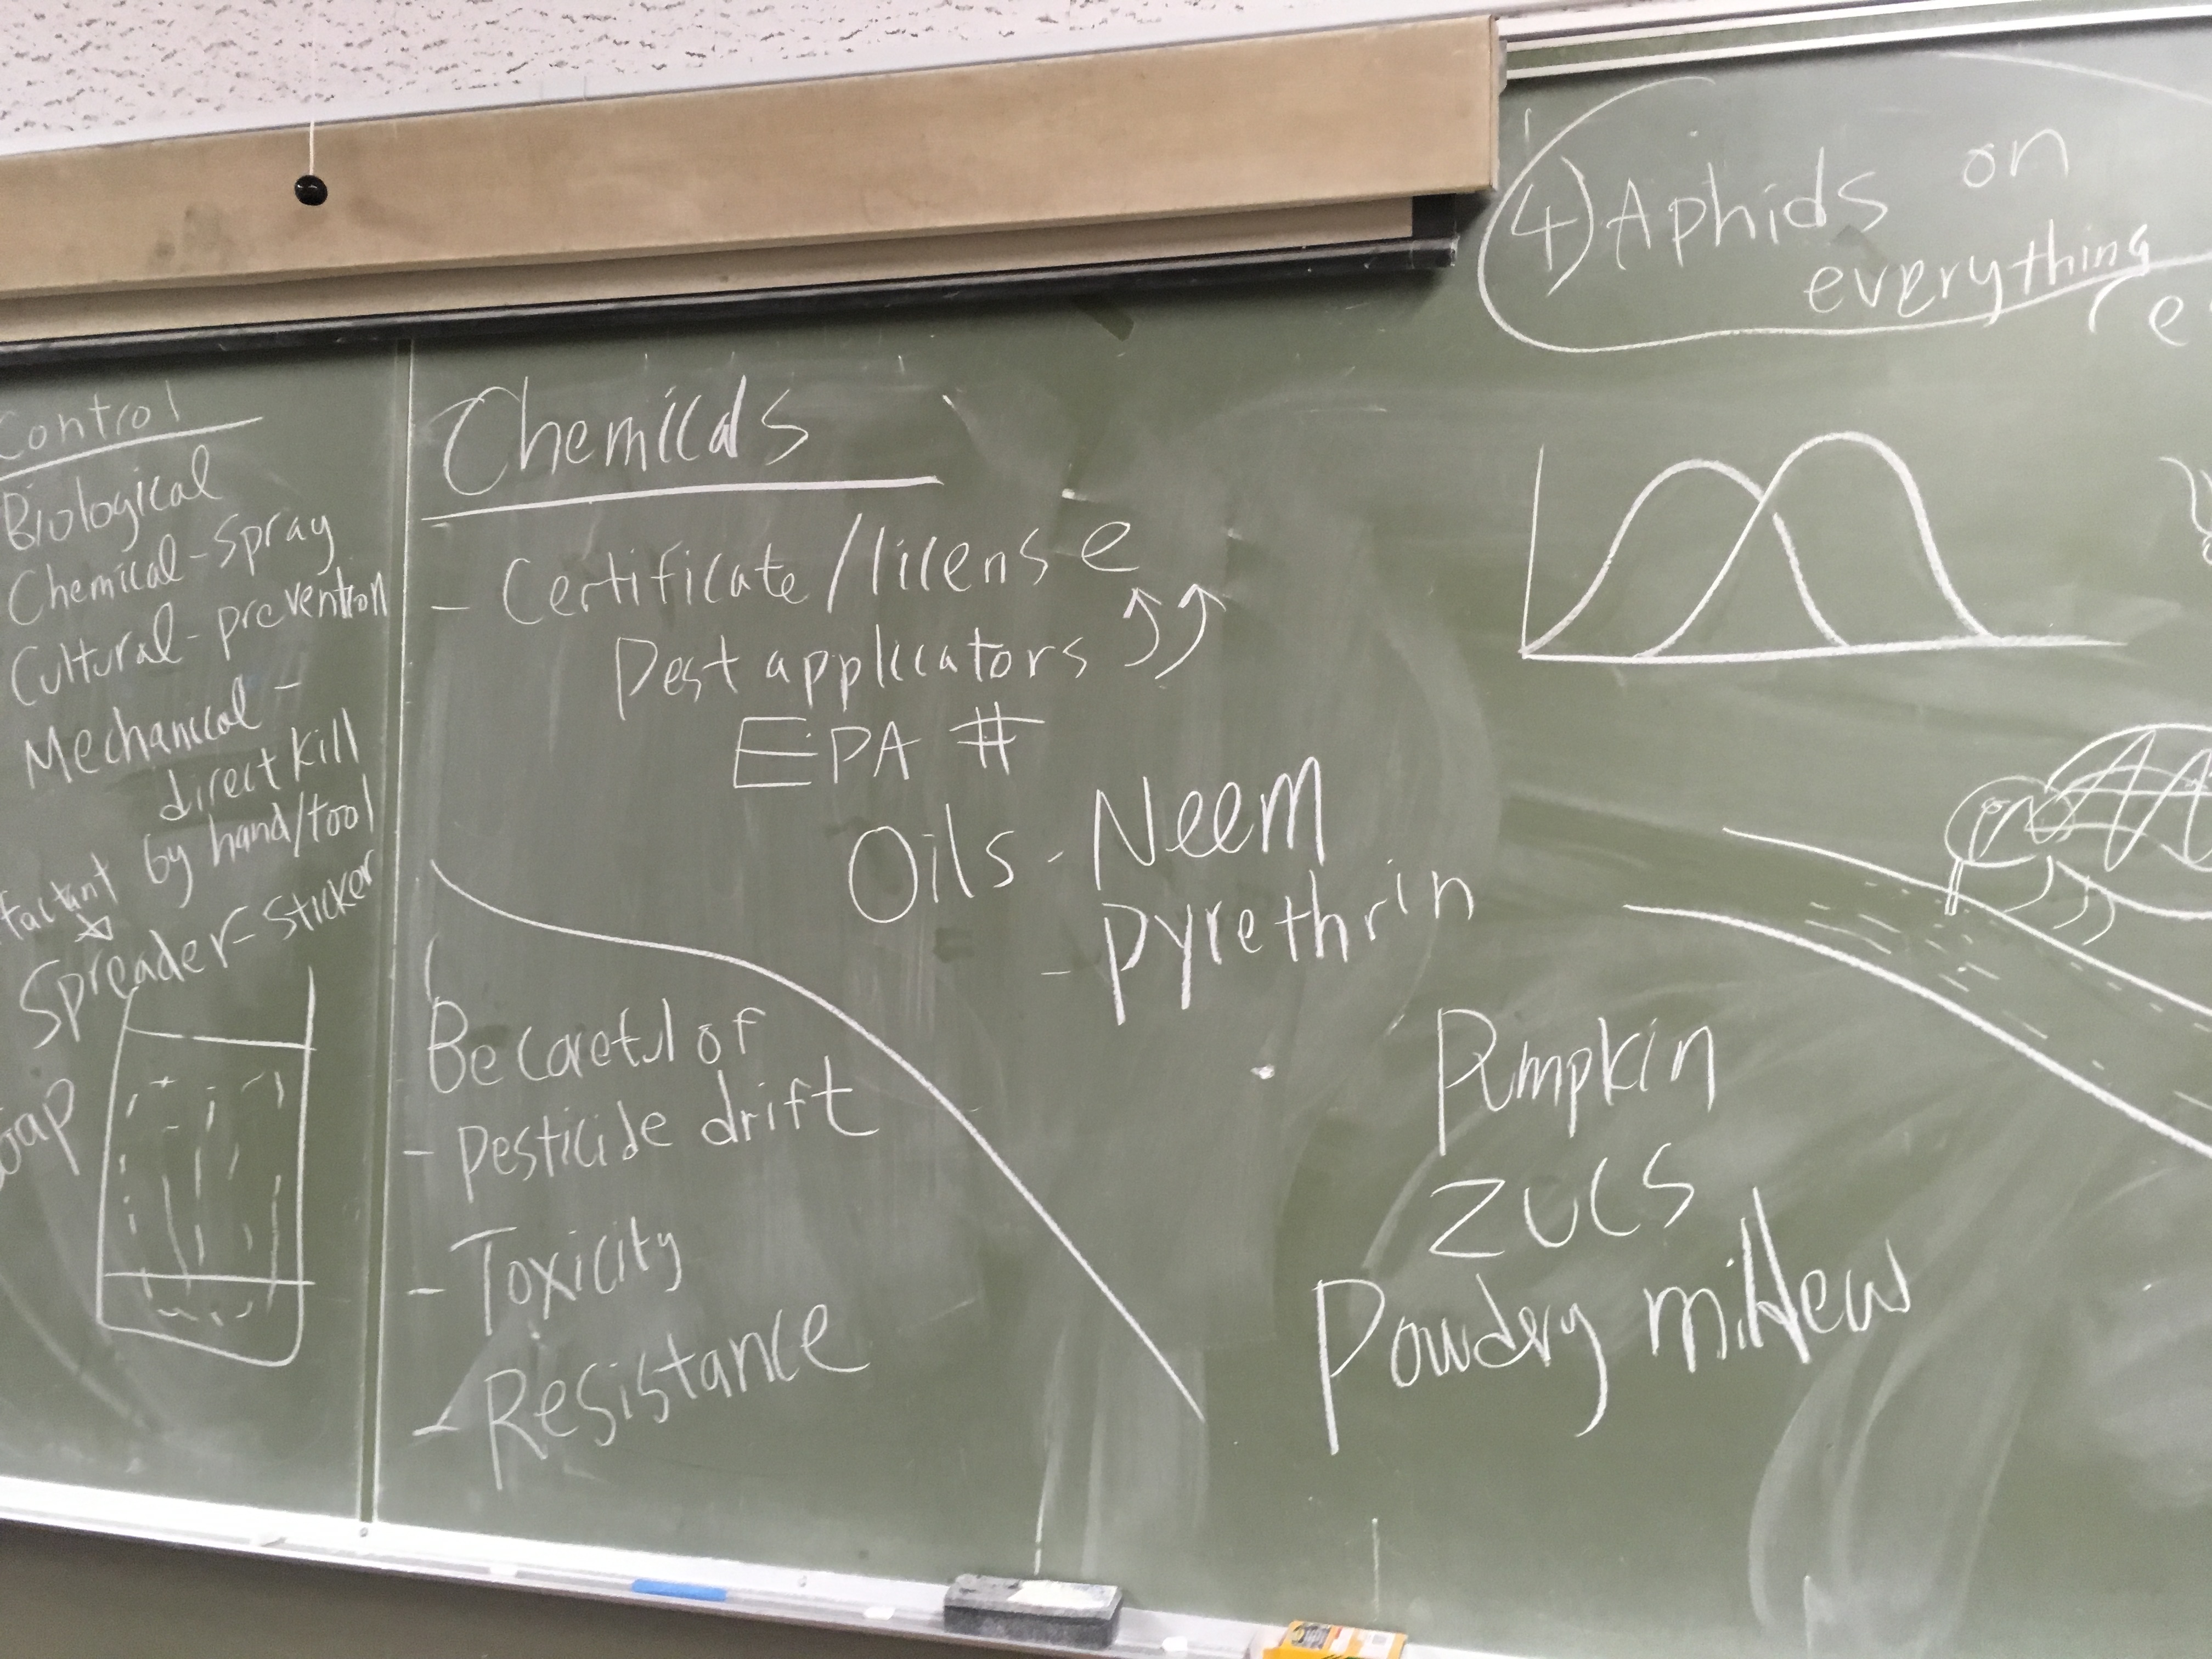 Control
Biological
Chemical-Spray
Cultural-prevention
Mechanical -
direct kill
by hand/tool
Spreader-Sticker
Chemicals
- Certificate/license
Pest applicators
EPA #
Oils - Neem
- Pyrethrin
Be careful of
- pesticide drift
- Toxicity
- Resistance
4) Aphids on
everything
Pumpkin
ZUCS
Powdery mildew